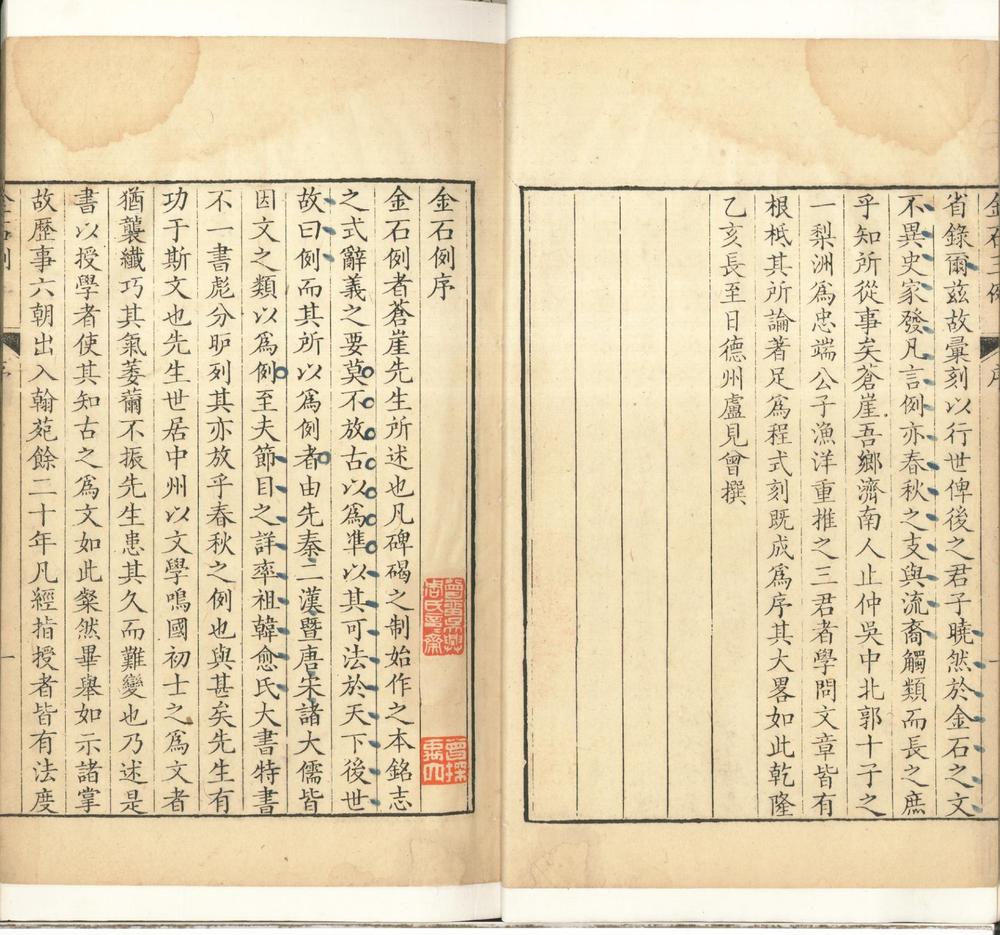 省錄爾茲故彙刻以行世俾後之君子曉然於金石之文
不異史家發凡言例亦春秋之支與流裔觸類而長之庶
乎知所從事矣蒼崖吾鄉濟南人止仲吳中北郭十子之
一梨洲爲忠端公子漁洋重推之三君者學問文章皆有
根柢其所論著足爲程式刻既成爲序其大畧如此乾隆
乙亥長至日德州盧見曾撰
金石例序
金石例者蒼崖先生所述也凡碑碣之制始作之本銘志
之式辭義之要莫不放古以爲準以其可法於天下後世
故曰例而其所以爲例者由先秦二漢暨唐宋諸大儒皆
因文之類以爲例至夫節目之詳率祖韓愈氏大書特書
不一書彪分昈列其亦放乎春秋之例也與甚矣先生有
功于斯文也先生世居中州以文學鳴國初士之爲文者
猶襲纖巧其氣萎薾不振先生患其久而難變也乃述是
書以授學者使其知古之爲文如此粲然畢舉如示諸掌
故歷事六朝出入翰苑餘二十年凡經指授者皆有法度